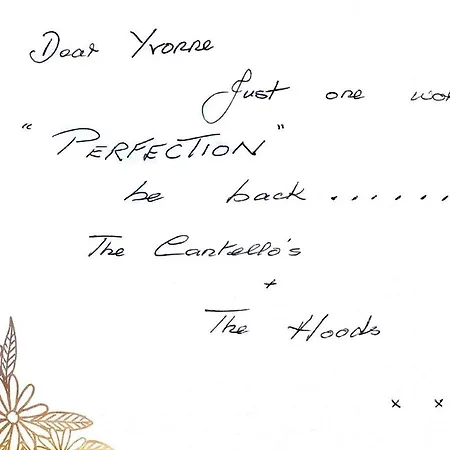 Dear Yvonne
Just one wor
"PERFECTION"
be back .......
The Cantello's
+
The Hoods
x x